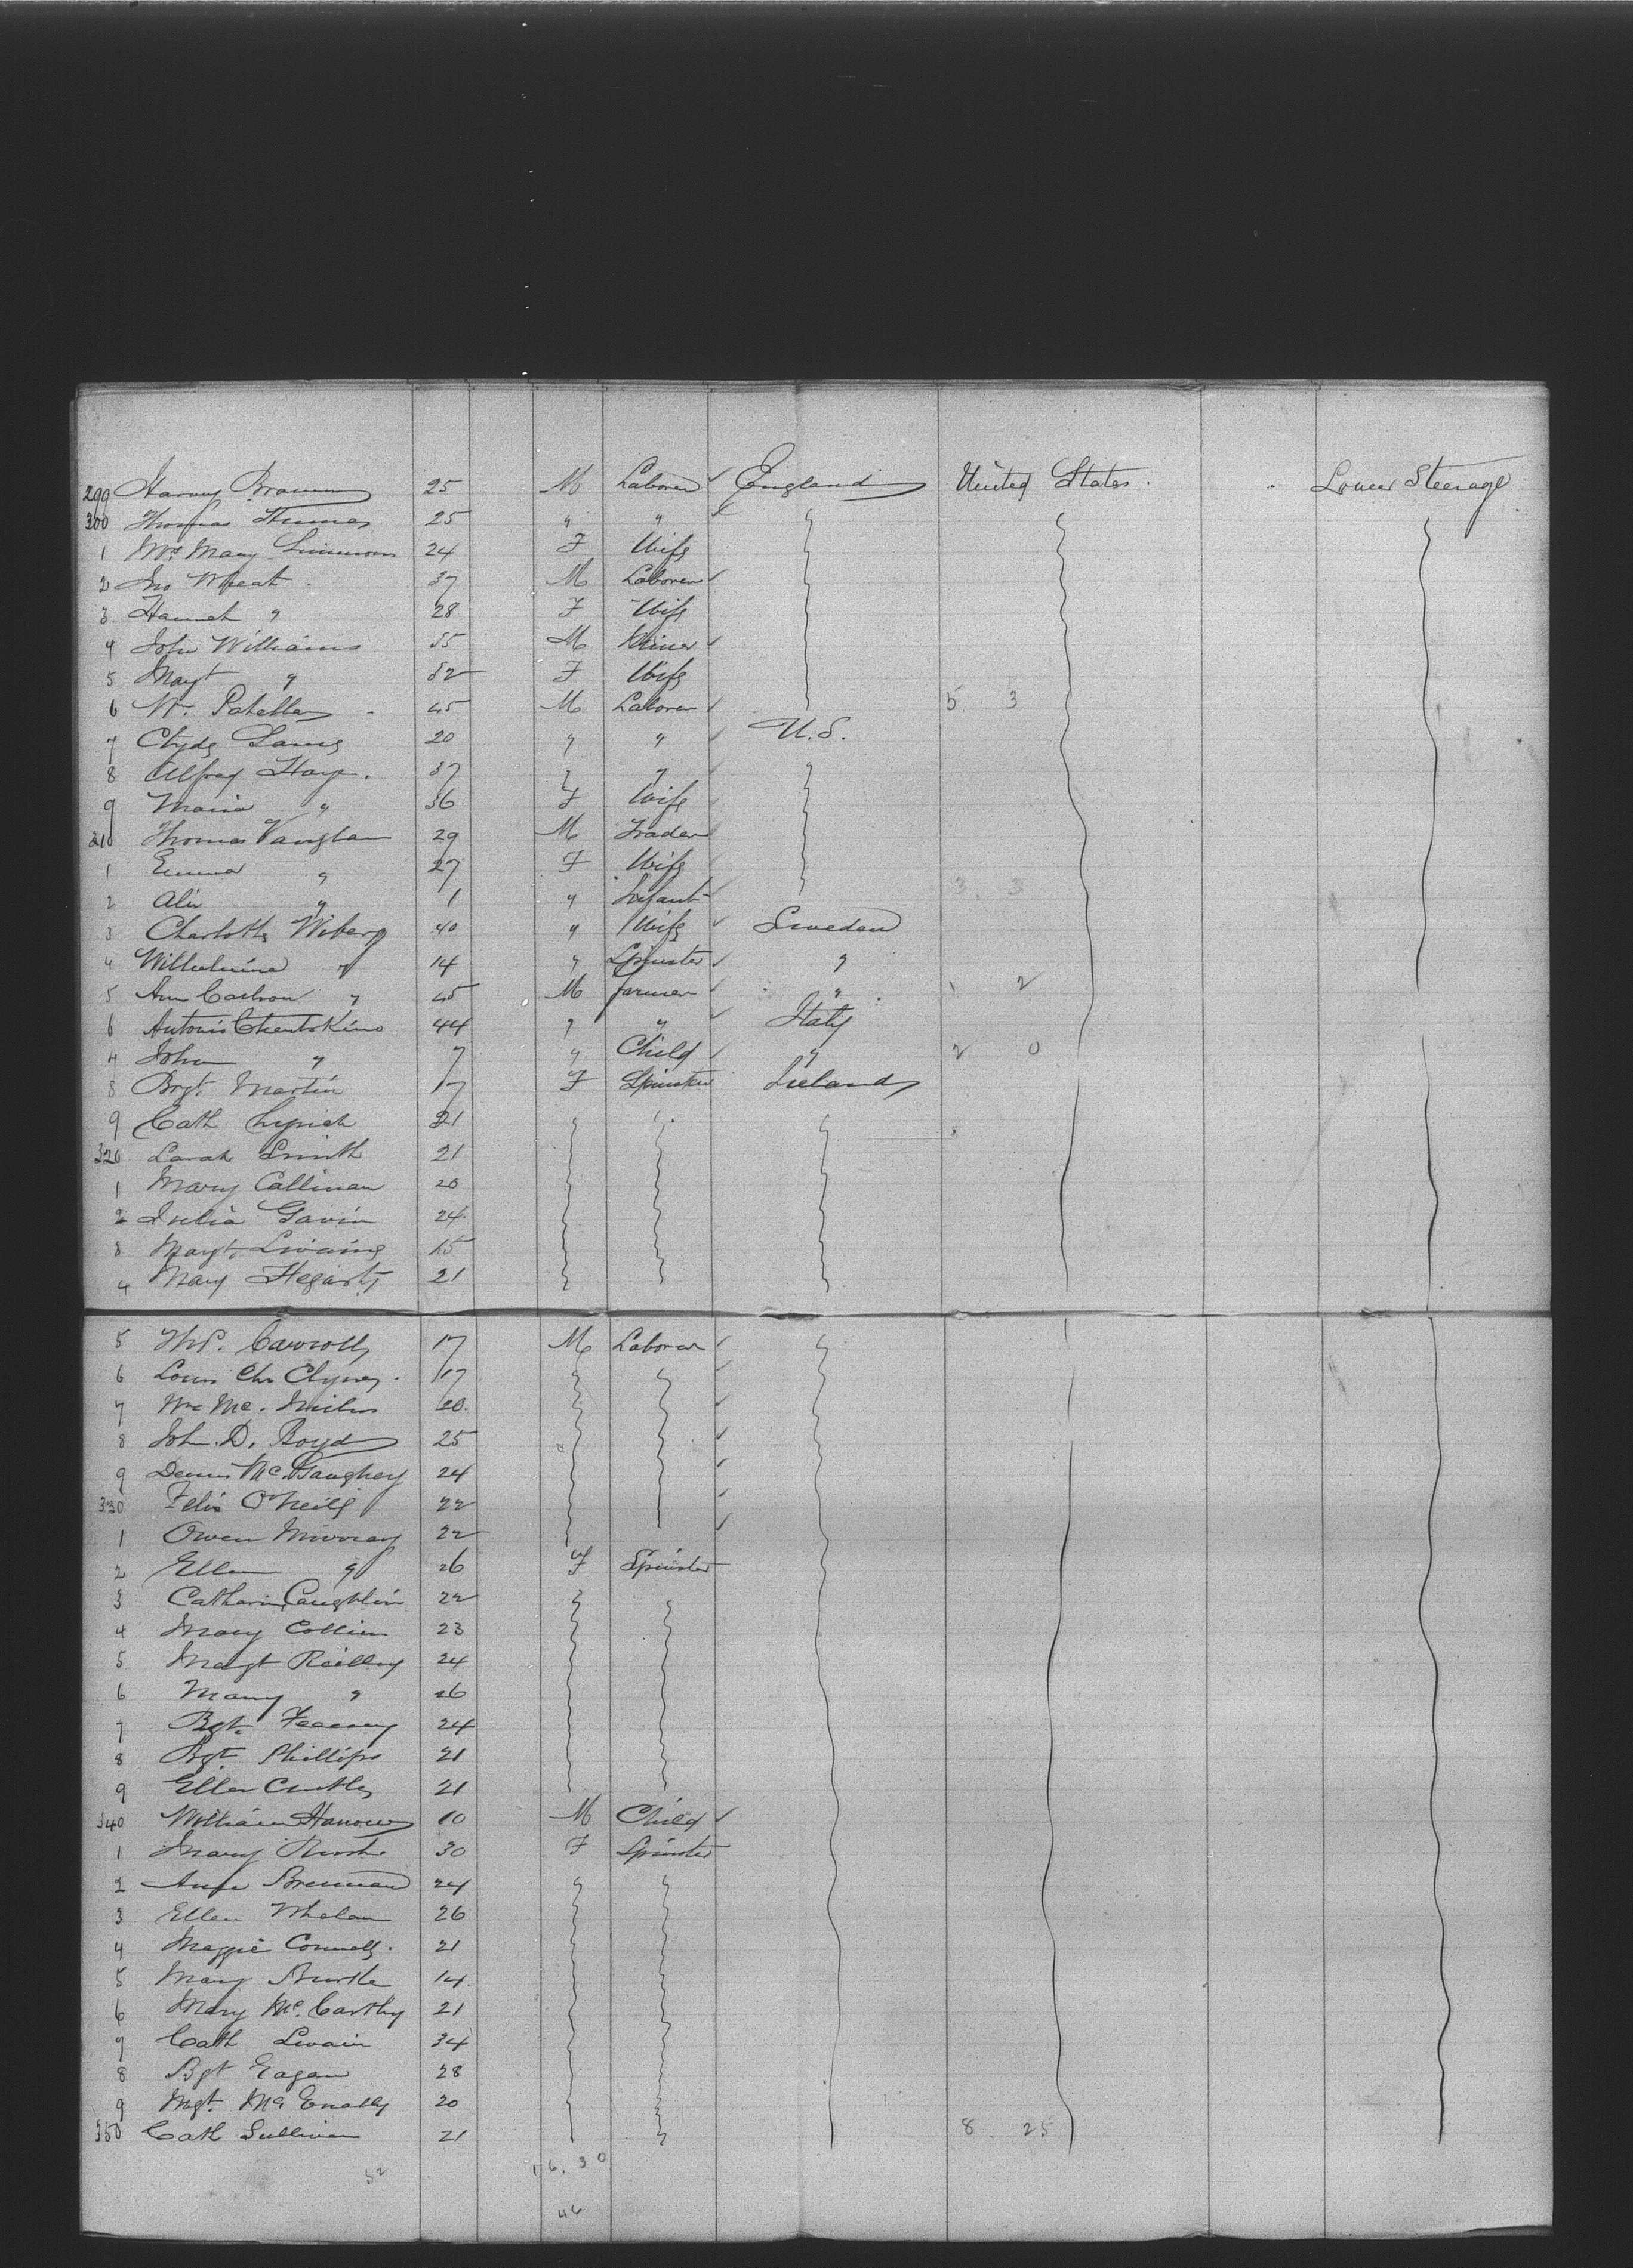 299 Harvey Brown 25 M Laborer England United States. " Lower Steerage
300 Thomas 25 " "
1 Mrs Mary Simmons 24 F Wife
2 Jno Wheat 37 M Laborer
3 Hannah " 28 F Wife
4 John Williams 55 M Miner
5 Magt " 52 F Wife
6 Wm 45 M Laborer 5 3
7 Clyde 20 " " U.S.
8 Alfred Haye. 37 " "
9 Maria " 36 F Wife
310 Thomas Vaughan 29 M Trader
1 Emma " 27 F Wife
2 " 1 " Infant 3 3
3 Charlotte Wiberg 40 " Wife Sweden
4 Wilhelmina " 14 " Spinster "
5 Carlson " 45 M farmer " 1 2
6 Antonio 44 " " Italy
7 John " 7 " Child " 2 0
8 Brgt. Martin 17 F Spinster Ireland
9 Cath Lynch 21
320 Sarah Smith 21
1 Mary Callinan 20
2 Julia Gavin 24
3 Margt. 15
4 Mary Hegarty 21
5 Carroll 17 M Laborer
6 Louis Clynes 17
7 Wm Mc. 20.
8 Joh. D. Boyd 25
9 Dennis McGaughey 24
330 Felix O'Neill 22
1 Owen Murray 22
2 Ellen " 26 F Spinster
3 Catharine Caughlin 22
4 Mary Collien 23
5 Magt Reilley 24
6 Mary " 26
7 Bgt. Feeney 24
8 Bgt. Phillips 21
9 Ellen 21
340 William 10 M Child
1 Mary 30 F Spinster
2 Anne Brennan 24
3 Ellen Whelan 26
4 Maggie Connolly. 21
5 Mary Burke 14.
6 Mary McCarthy 21
7 Cath Swain 34
8 Bgt Eagan 28
9 Mgt. Mc 20
350 Cath Sullivan 21 8 25
52 16. 30
46